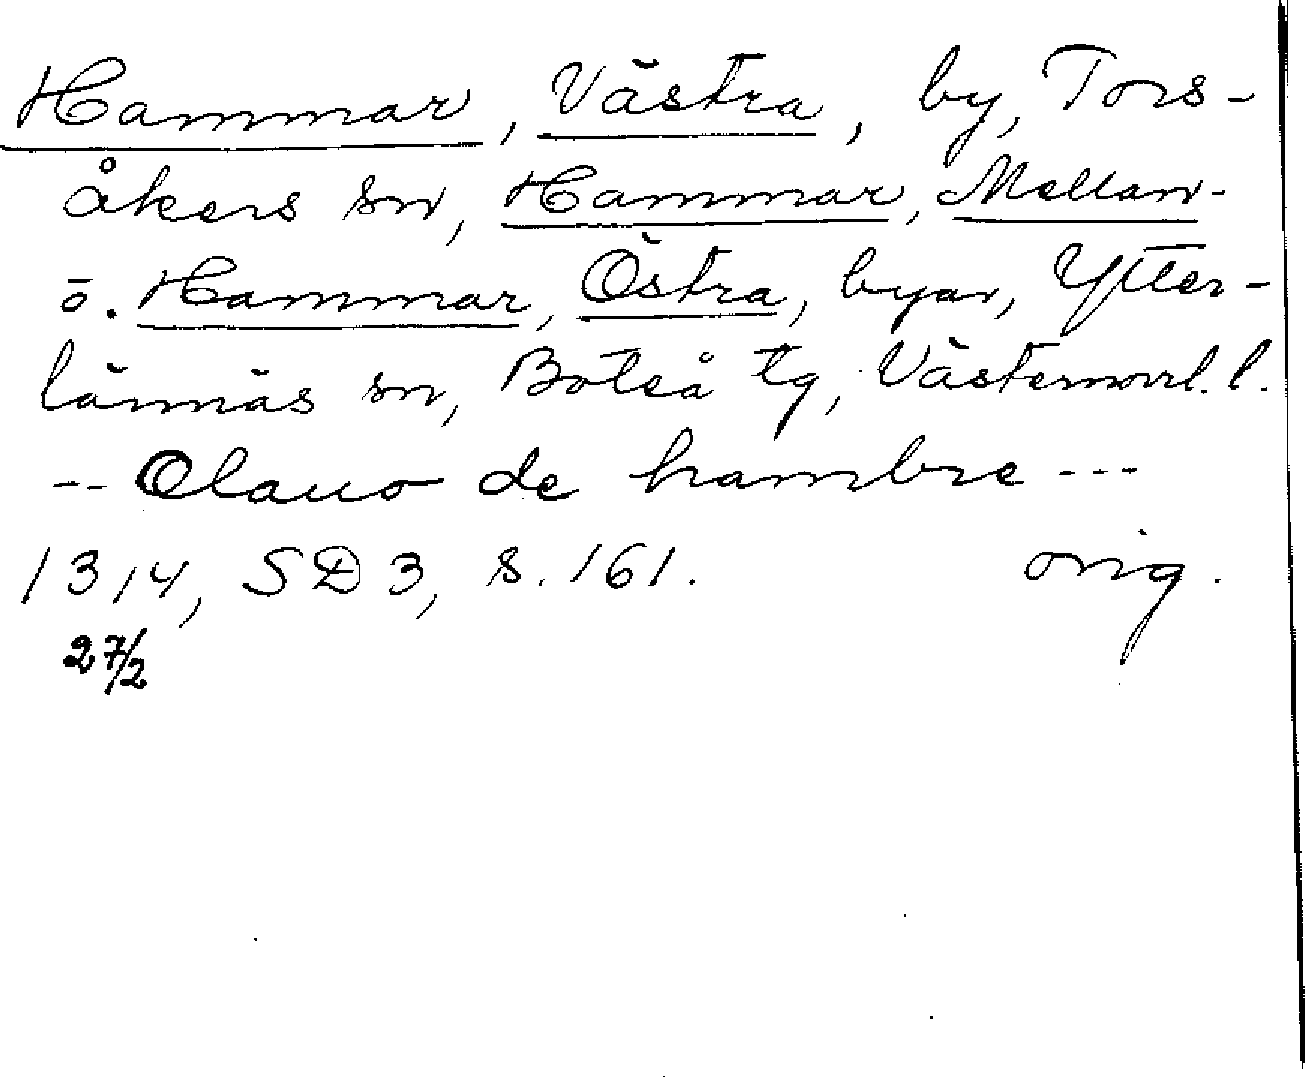 Hammar, Västra, by, Tors-
åkers sn, Hammar, Mellan-
o. Hammar, Östra, byar, Ytter-
lännäs sn, Boteå tg, Västernorrl. l.
-- Olauo de hambre ---
1314, SD 3, s. 161. orig.
27/2